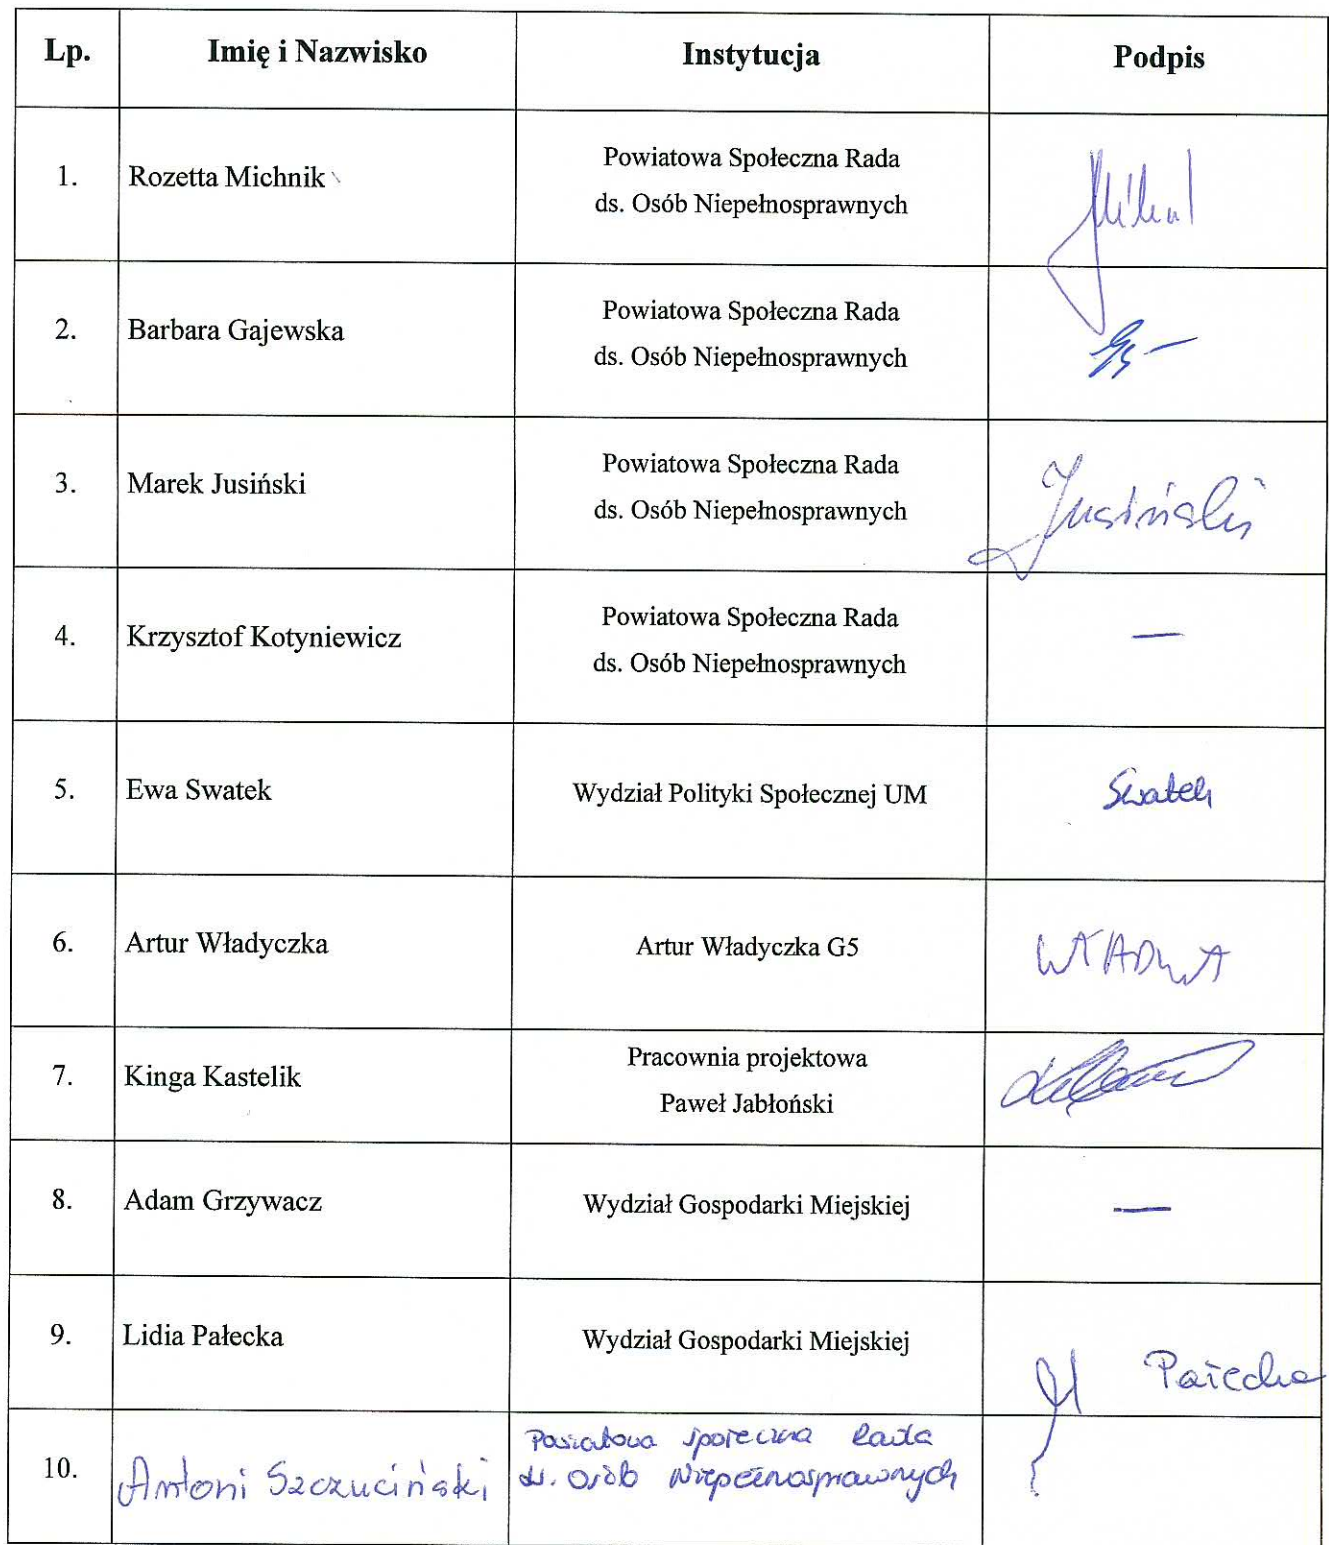 Lp. Imię i Nazwisko Instytucja Podpis
1. Rozetta Michnik Powiatowa Społeczna Rada
ds. Osób Niepełnosprawnych
2. Barbara Gajewska Powiatowa Społeczna Rada
ds. Osób Niepełnosprawnych
3. Marek Jusiński Powiatowa Społeczna Rada
ds. Osób Niepełnosprawnych Jusiński
4. Krzysztof Kotyniewicz Powiatowa Społeczna Rada
ds. Osób Niepełnosprawnych —
5. Ewa Swatek Wydział Polityki Społecznej UM Swatek
6. Artur Władyczka Artur Władyczka G5
7. Kinga Kastelik Pracownia projektowa
Paweł Jabłoński
8. Adam Grzywacz Wydział Gospodarki Miejskiej —
9. Lidia Pałecka Wydział Gospodarki Miejskiej Pałecka
10. Antoni Szczuciński Powiatowa Społeczna Rada
ds. Osób Niepełnosprawnych